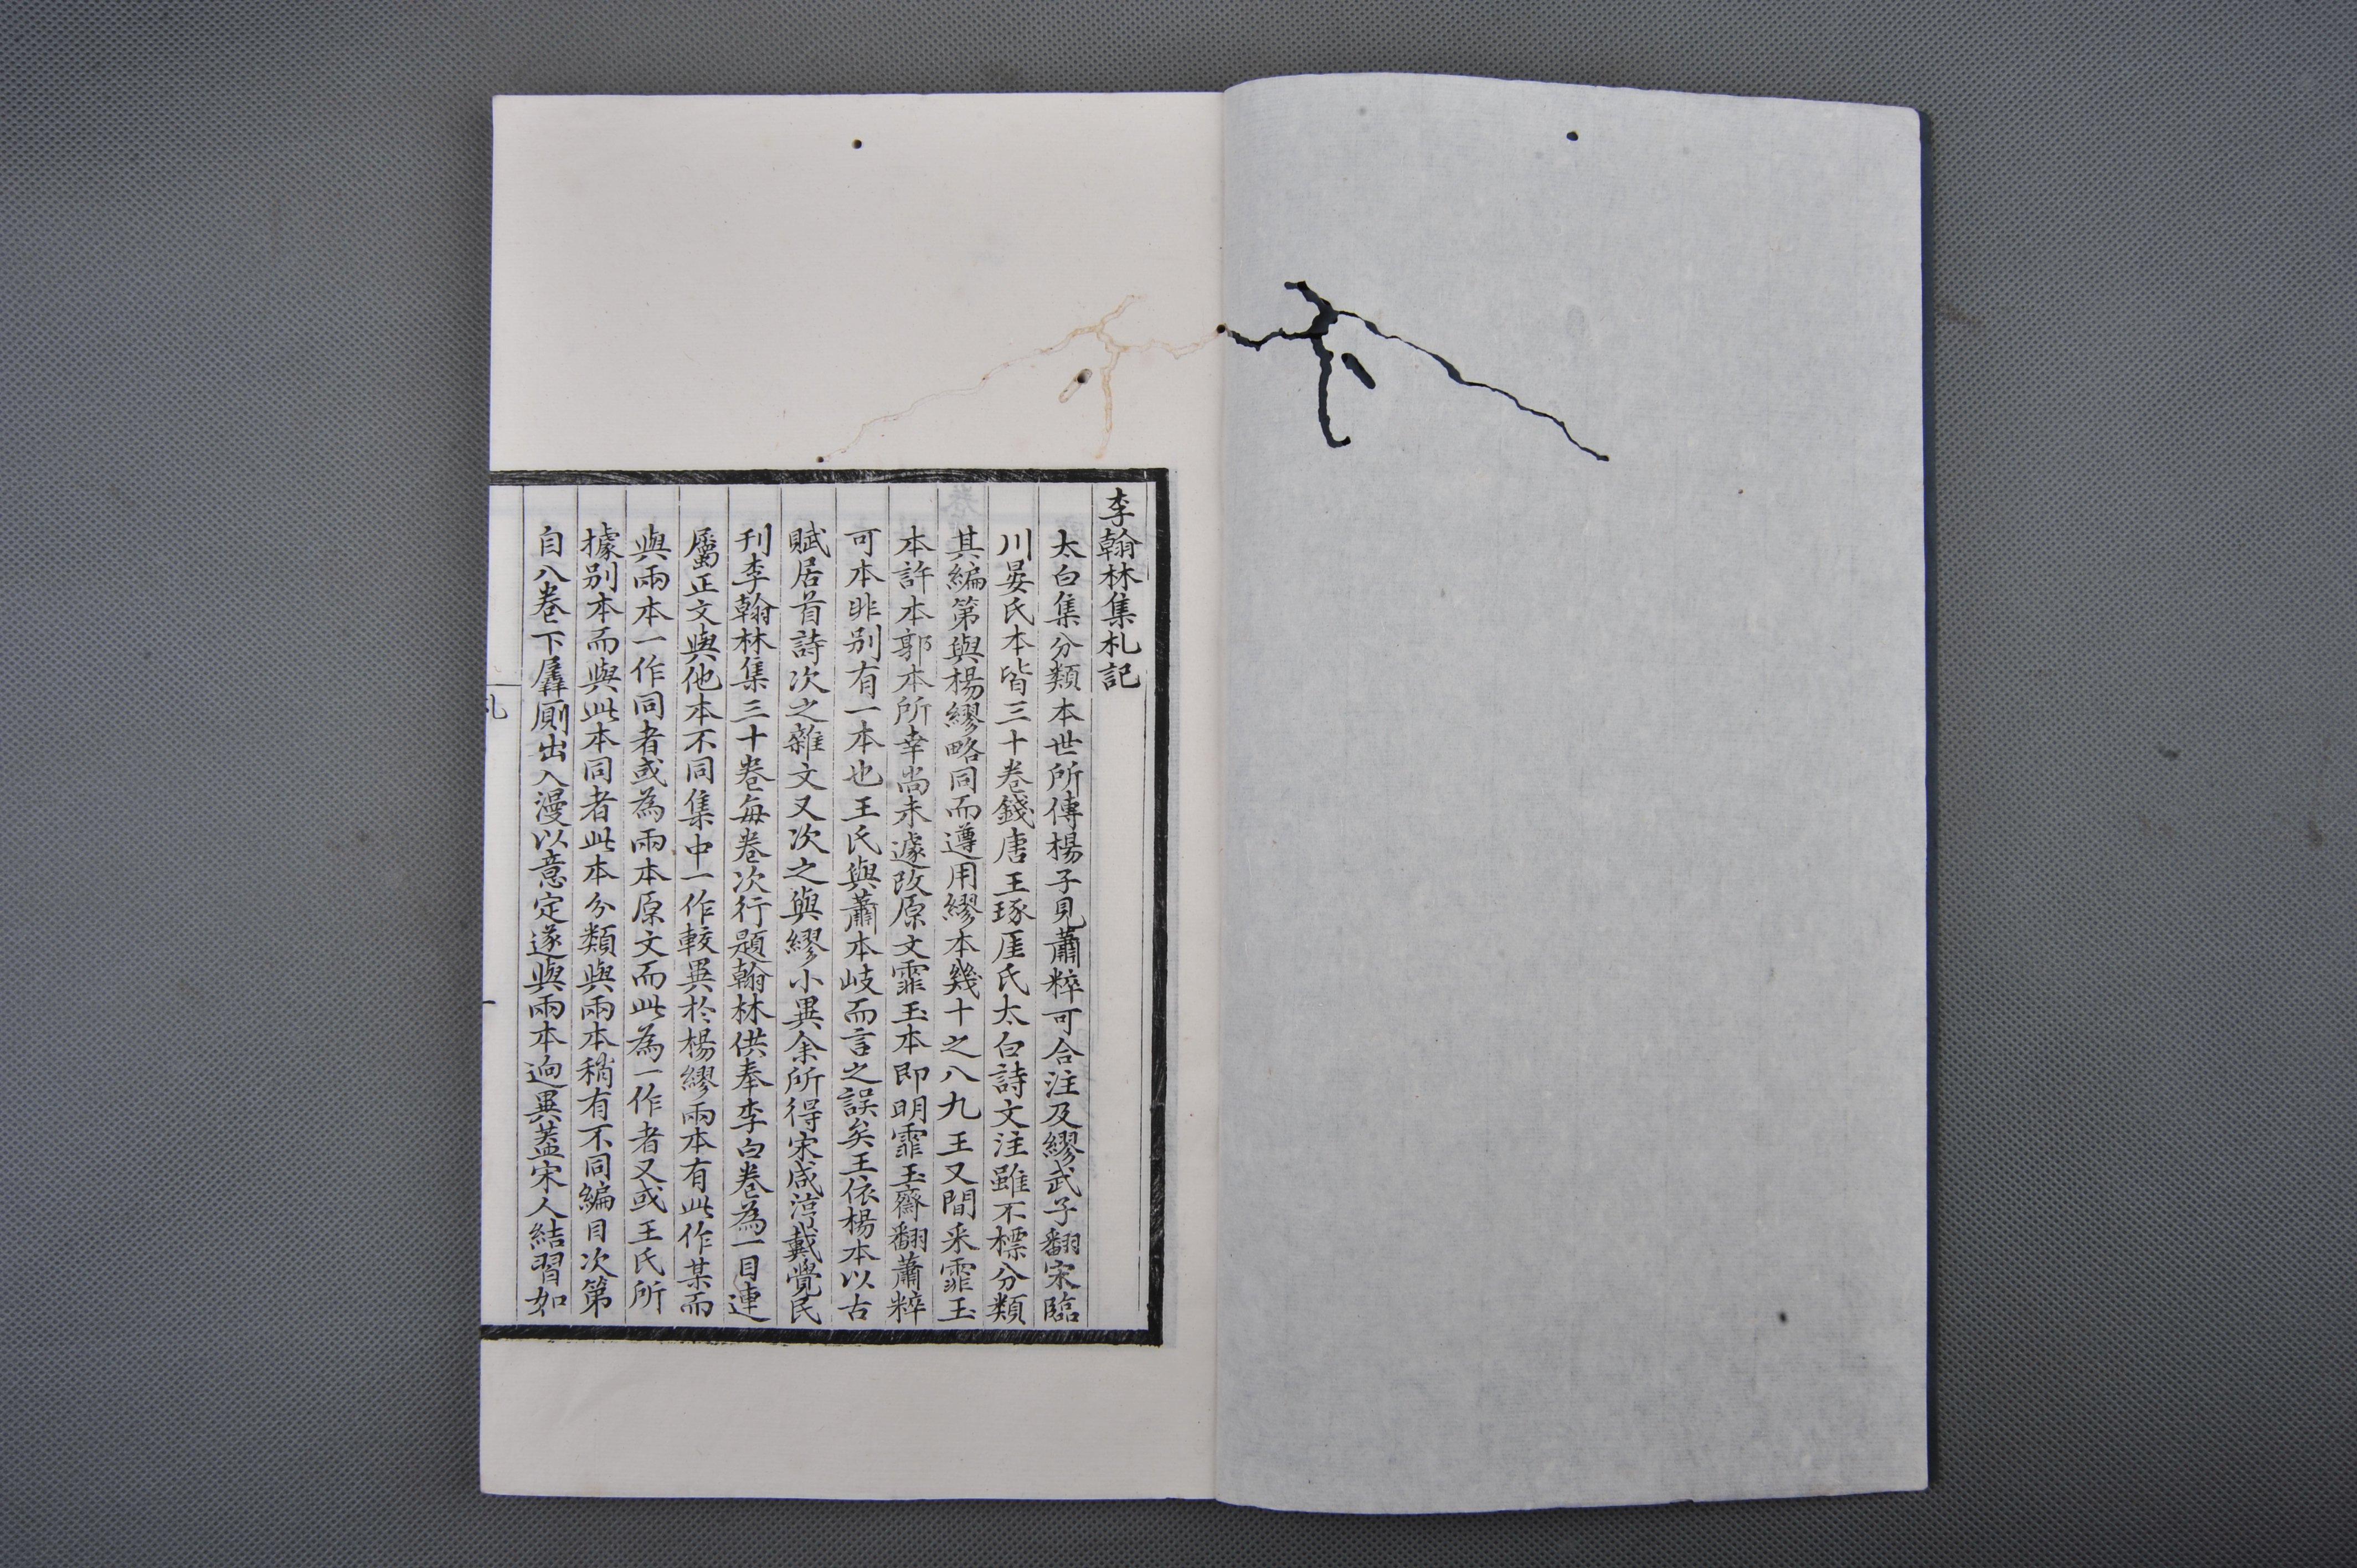 李翰林集札記
太白集分類本世所傳楊子見蕭粹可合注及繆武子翻宋臨
川晏氏本皆三十卷錢唐王琢厓氏太白詩文注雖不標分類
其編第與楊繆略同而遵用繆本幾十之八九王又間采霏玉
本許本郭本所幸尚未遽改原文霏玉本即明霏玉齋翻蕭粹
可本非别有一本也王氏與蕭本岐而言之誤矣王依楊本以古
賦居首詩次之雜文又次之與繆小異余所得宋咸淳戴覺民
刊李翰林集三十卷每卷次行題翰林供奉李白卷為一目連
屬正文與他本不同集中一作較異於楊繆兩本有此作某而
與兩本一作同者或為兩本原文而此為一作者又或王氏所
據别本而與此本同者此本分類與兩本稍有不同編目次第
自八卷下羼厠出入漫以意定遂與兩本迥異蓋宋人結習如
札
一